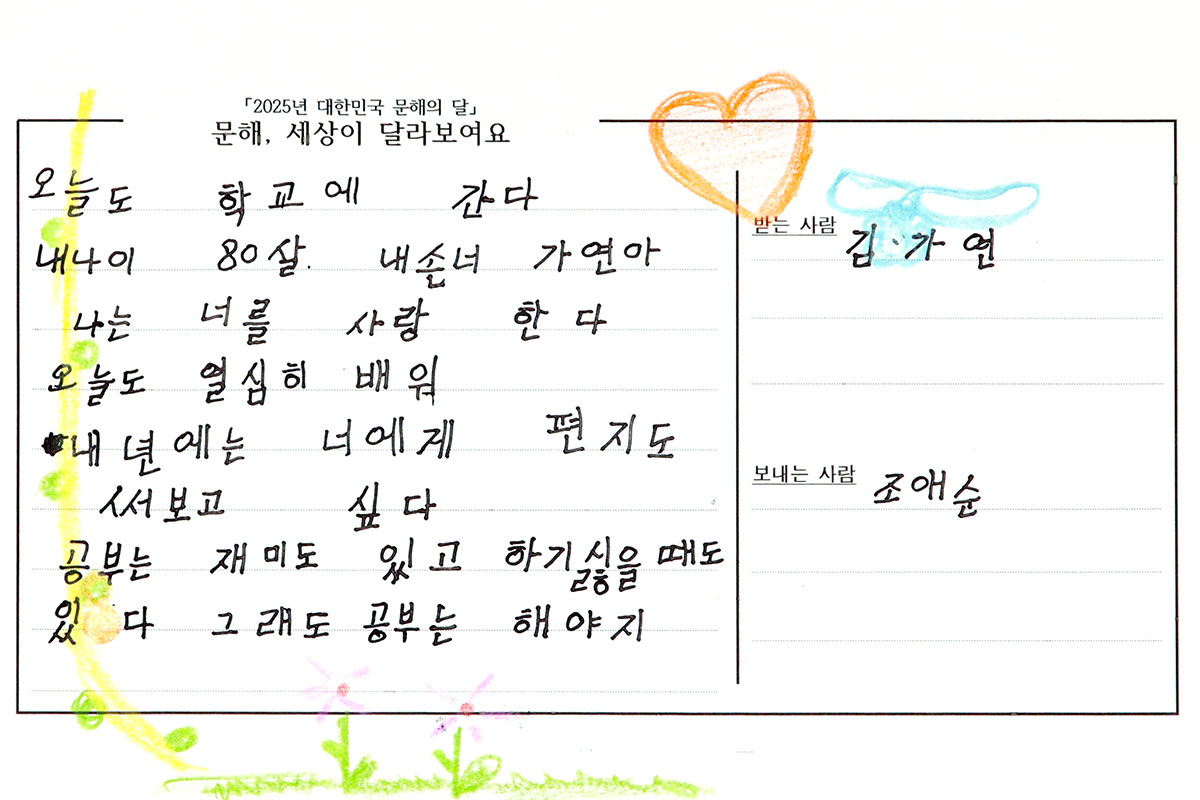 「2025년 대한민국 문해의 달」
문해, 세상이 달라보여요
오늘도 학교에 간다
내나이 80살. 내손녀 가연아
나는 너를 사랑 한다
오늘도 열심히 배워
내년에는 너에게 편지도
써보고 싶다
공부는 재미도 있고 하기싫을 때도
있다 그래도 공부는 해야지
받는 사람
김가연
보내는 사람
조애순